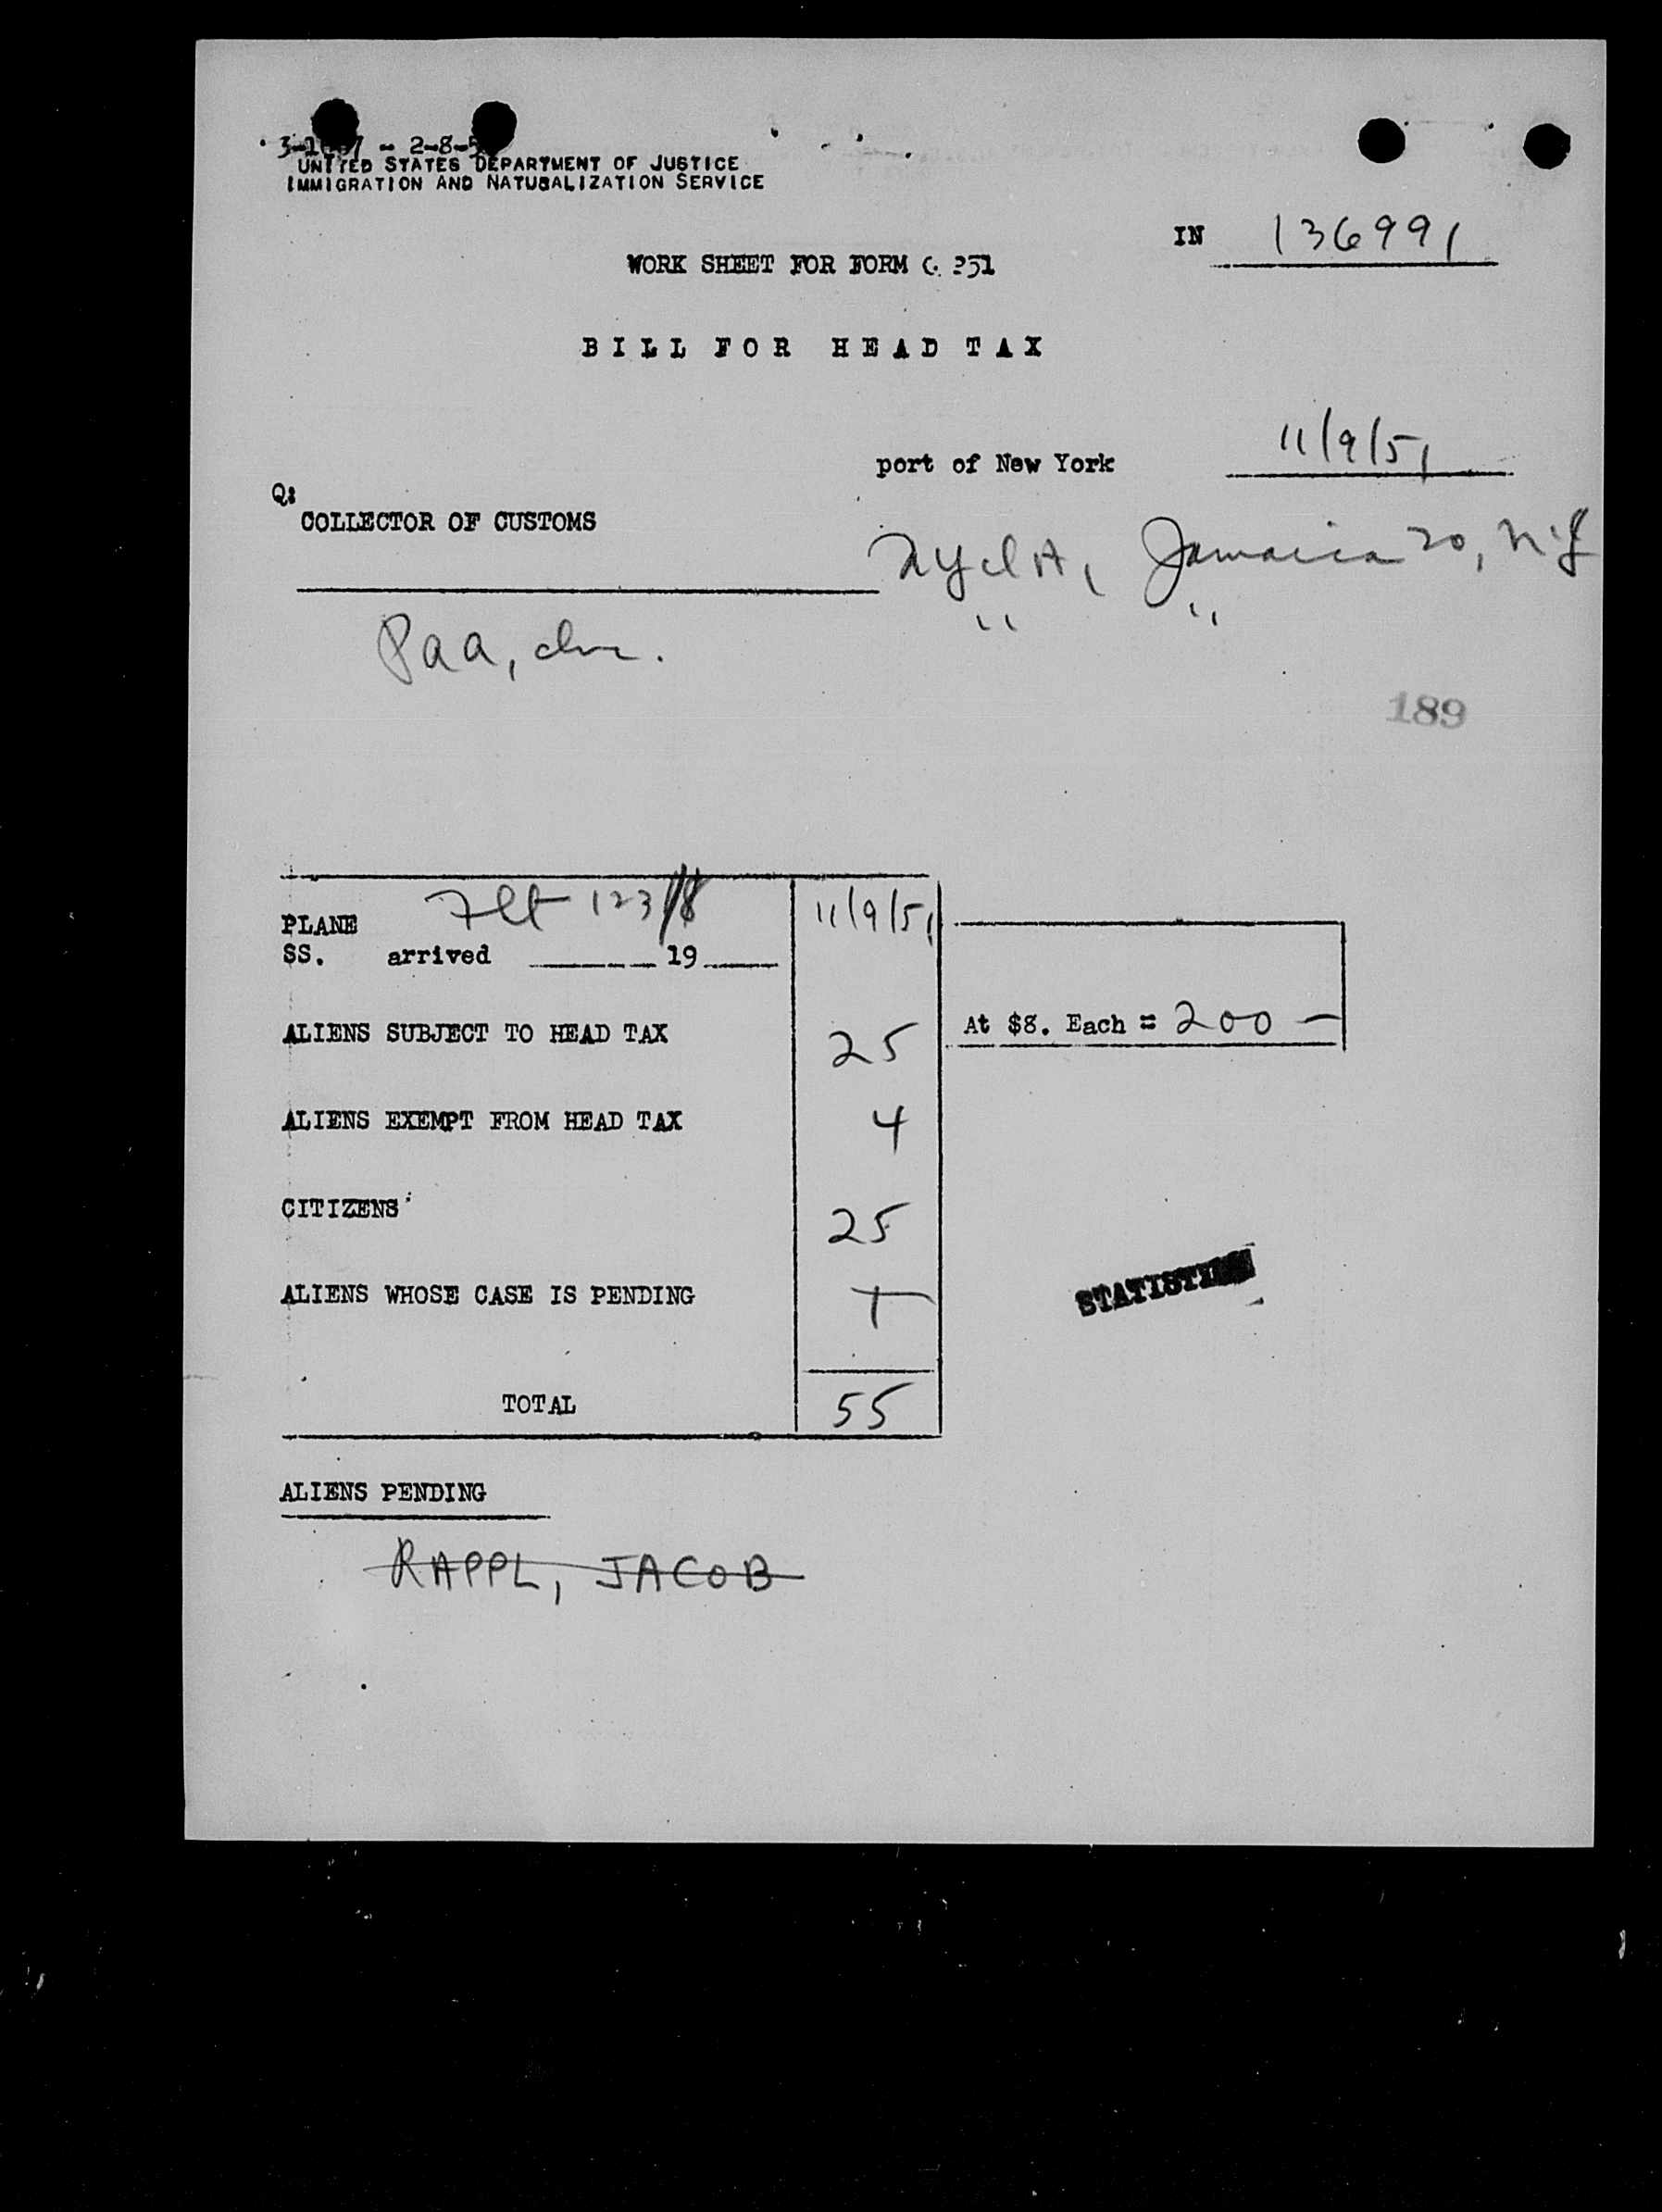 UNITED STATES DEPARTMENT OF JUSTICE
IMMIGRATION AND NATUBALIZATION SERVICE
IN 136991
WORK SHEET FOR FORM G. 251
BILL FOR HEAD TAX
port of New York 11/9/51
COLLECTOR OF CUSTOMS
Jamaica 20, N.Y
" "
Paa, Inc.
189
PLANE Flt 123 11/9/51
SS. arrived 19
ALIENS SUBJECT TO HEAD TAX 25 At $8. Each = 200 —
ALIENS EXEMPT FROM HEAD TAX 4
CITIZENS 25
ALIENS WHOSE CASE IS PENDING 1
TOTAL 55
ALIENS PENDING
RAPPL, JACOB